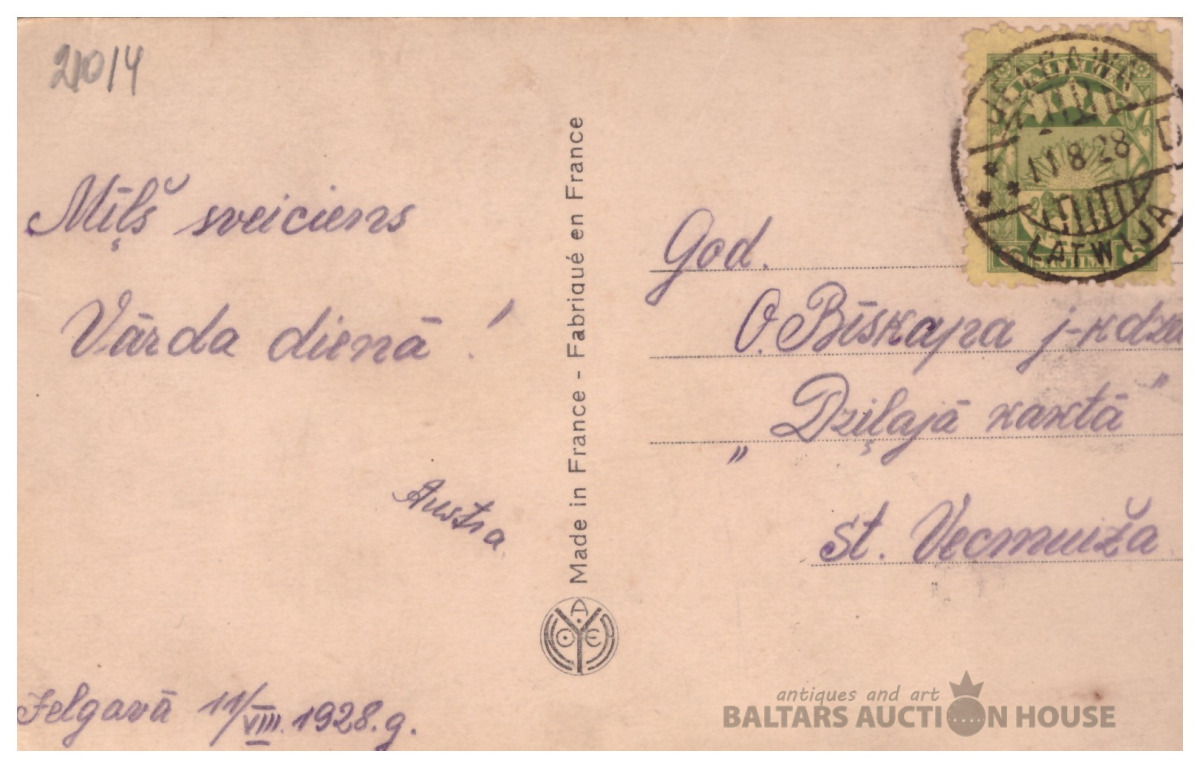 210/4
Mīļš sveiciens
Vārda dienā!
Austra
Jelgavā 11/VIII. 1928.g.
Made in France - Fabriqué en France
LATWIJA
11 8 28
God.
O. Bīskapa j-kdze
„Dziļajā kaktā”
st. Vecmuiža
antiques and art
BALTARS AUCTION HOUSE